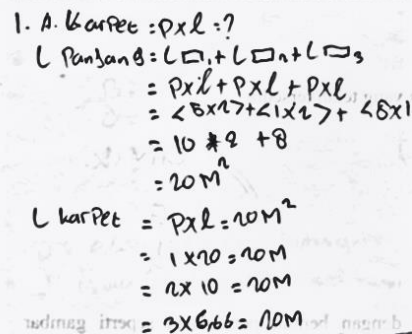 1. A. Karpet : p x l : ?
L Panjang : L □₁ + L □₂ + L □₃
= P x l + P x l + P x l
= <5 x 2> + <1 x 2> + <8 x 1
= 10 + 2 + 8
= 20 M²
L karpet = P x l = 20 M²
= 1 x 20 = 20 M
= 2 x 10 = 20 M
= 3 x 6,66 = 20 M